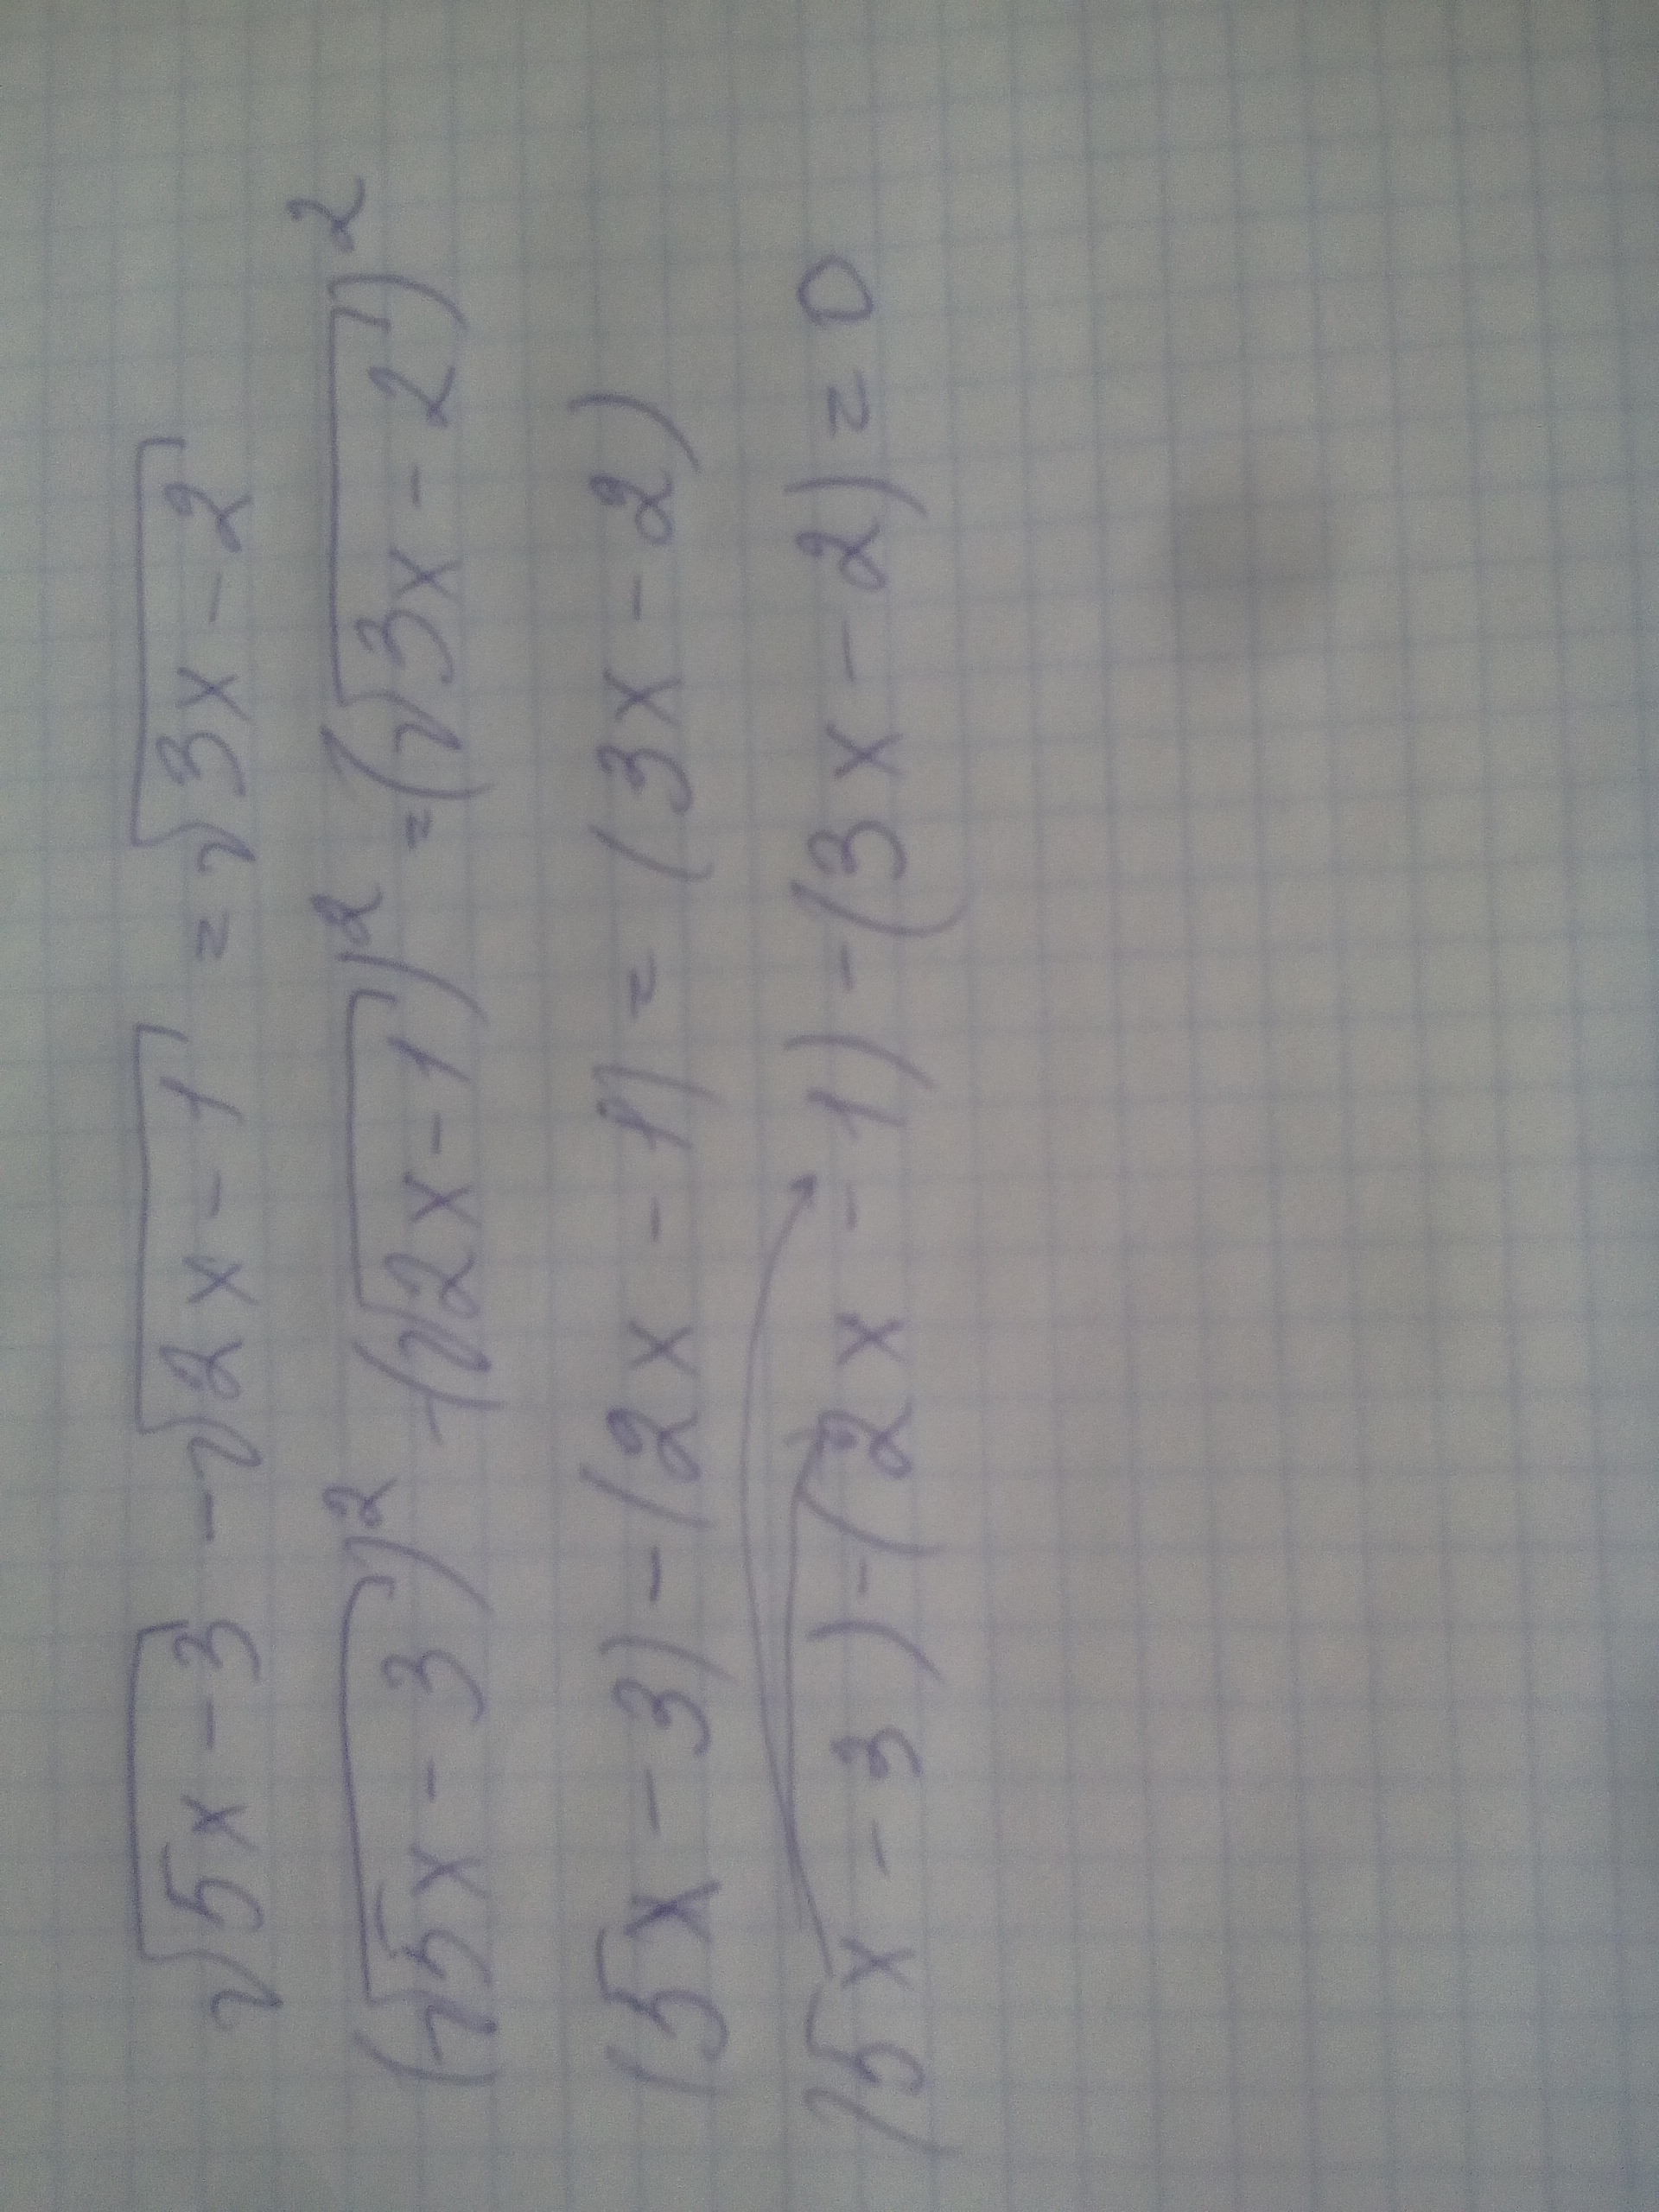 √5x-3 - √2x-1 = √3x-2
(√5x-3)² - (√2x-1)² = (√3x-2)²
(5x-3) - (2x-1) = (3x-2)
(5x-3) - (2x-1) - (3x-2) = 0